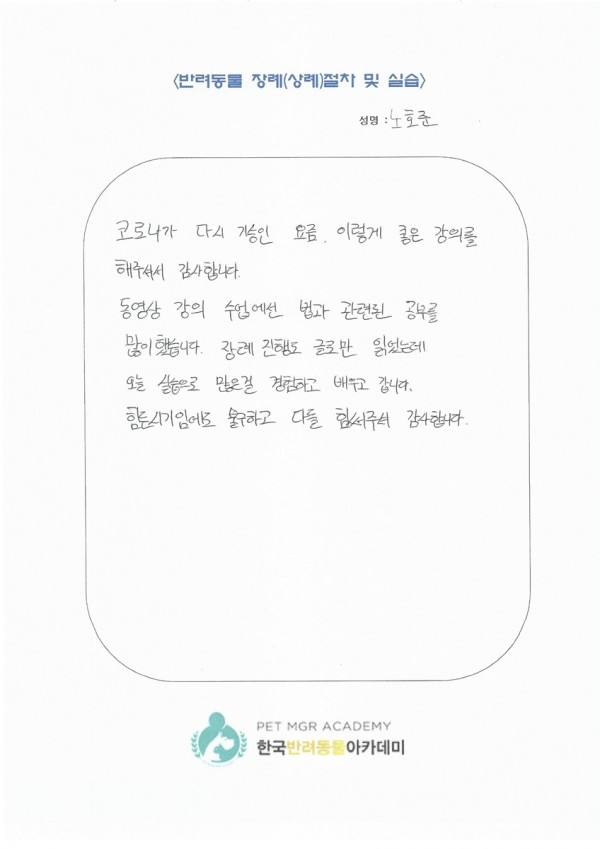 <반려동물 장례(상례)절차 및 실습>
성명 : 노호준
코로나가 다시 기승인 요즘, 이렇게 좋은 강의를
해주셔서 감사합니다.
동영상 강의 수업에선 법과 관련된 공부를
많이 했습니다. 장례 진행도 글로만 읽었는데
오늘 실습으로 많은걸 경험하고 배우고 갑니다.
힘든시기임에도 불구하고 다들 힘써주셔 감사합니다.
PET MGR ACADEMY
한국반려동물아카데미